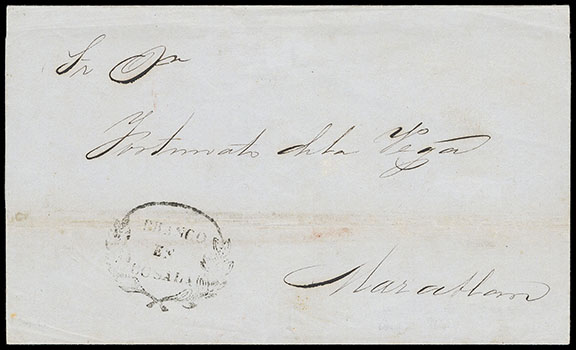 Sr Dn
Fortunato de la Vega
FRANCO
EN
COSALA
Mazatlan